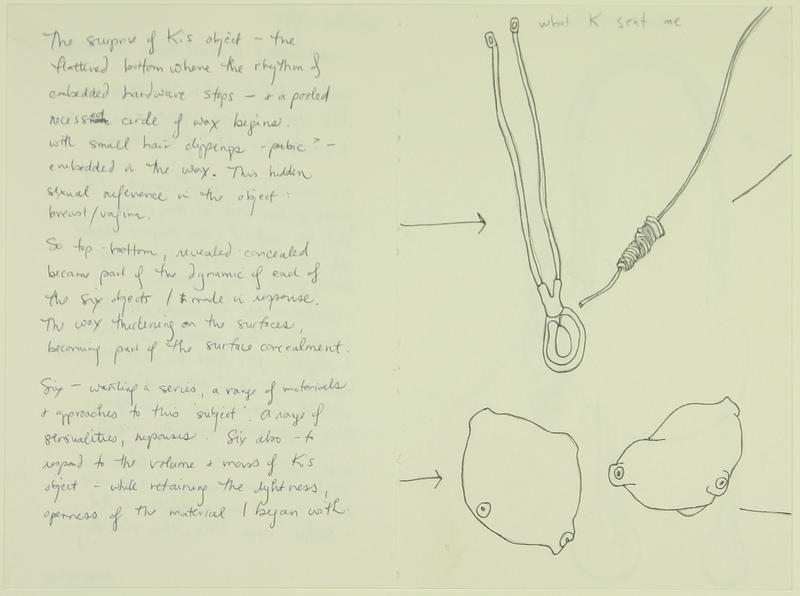 The surprise of K's object – the
flattened bottom where the rhythm of
embedded hardware stops – & a pooled
recessed circle of wax begins.
with small hair clippings - pubic? -
embedded in the wax. This hidden
sexual reference in the object:
breast/vagina.
So top-bottom, revealed concealed
became part of the dynamic of each of
the six objects I made in response.
The wax thickening on the surfaces,
becoming part of the surface concealment.
Six – wanting a series, a range of materials
& approaches to this 'subject'. A range of
sensualities, responses. Six also – to
respond to the volume & mass of K's
object – while retaining the lightness,
openness of the material I began with.
what K sent me